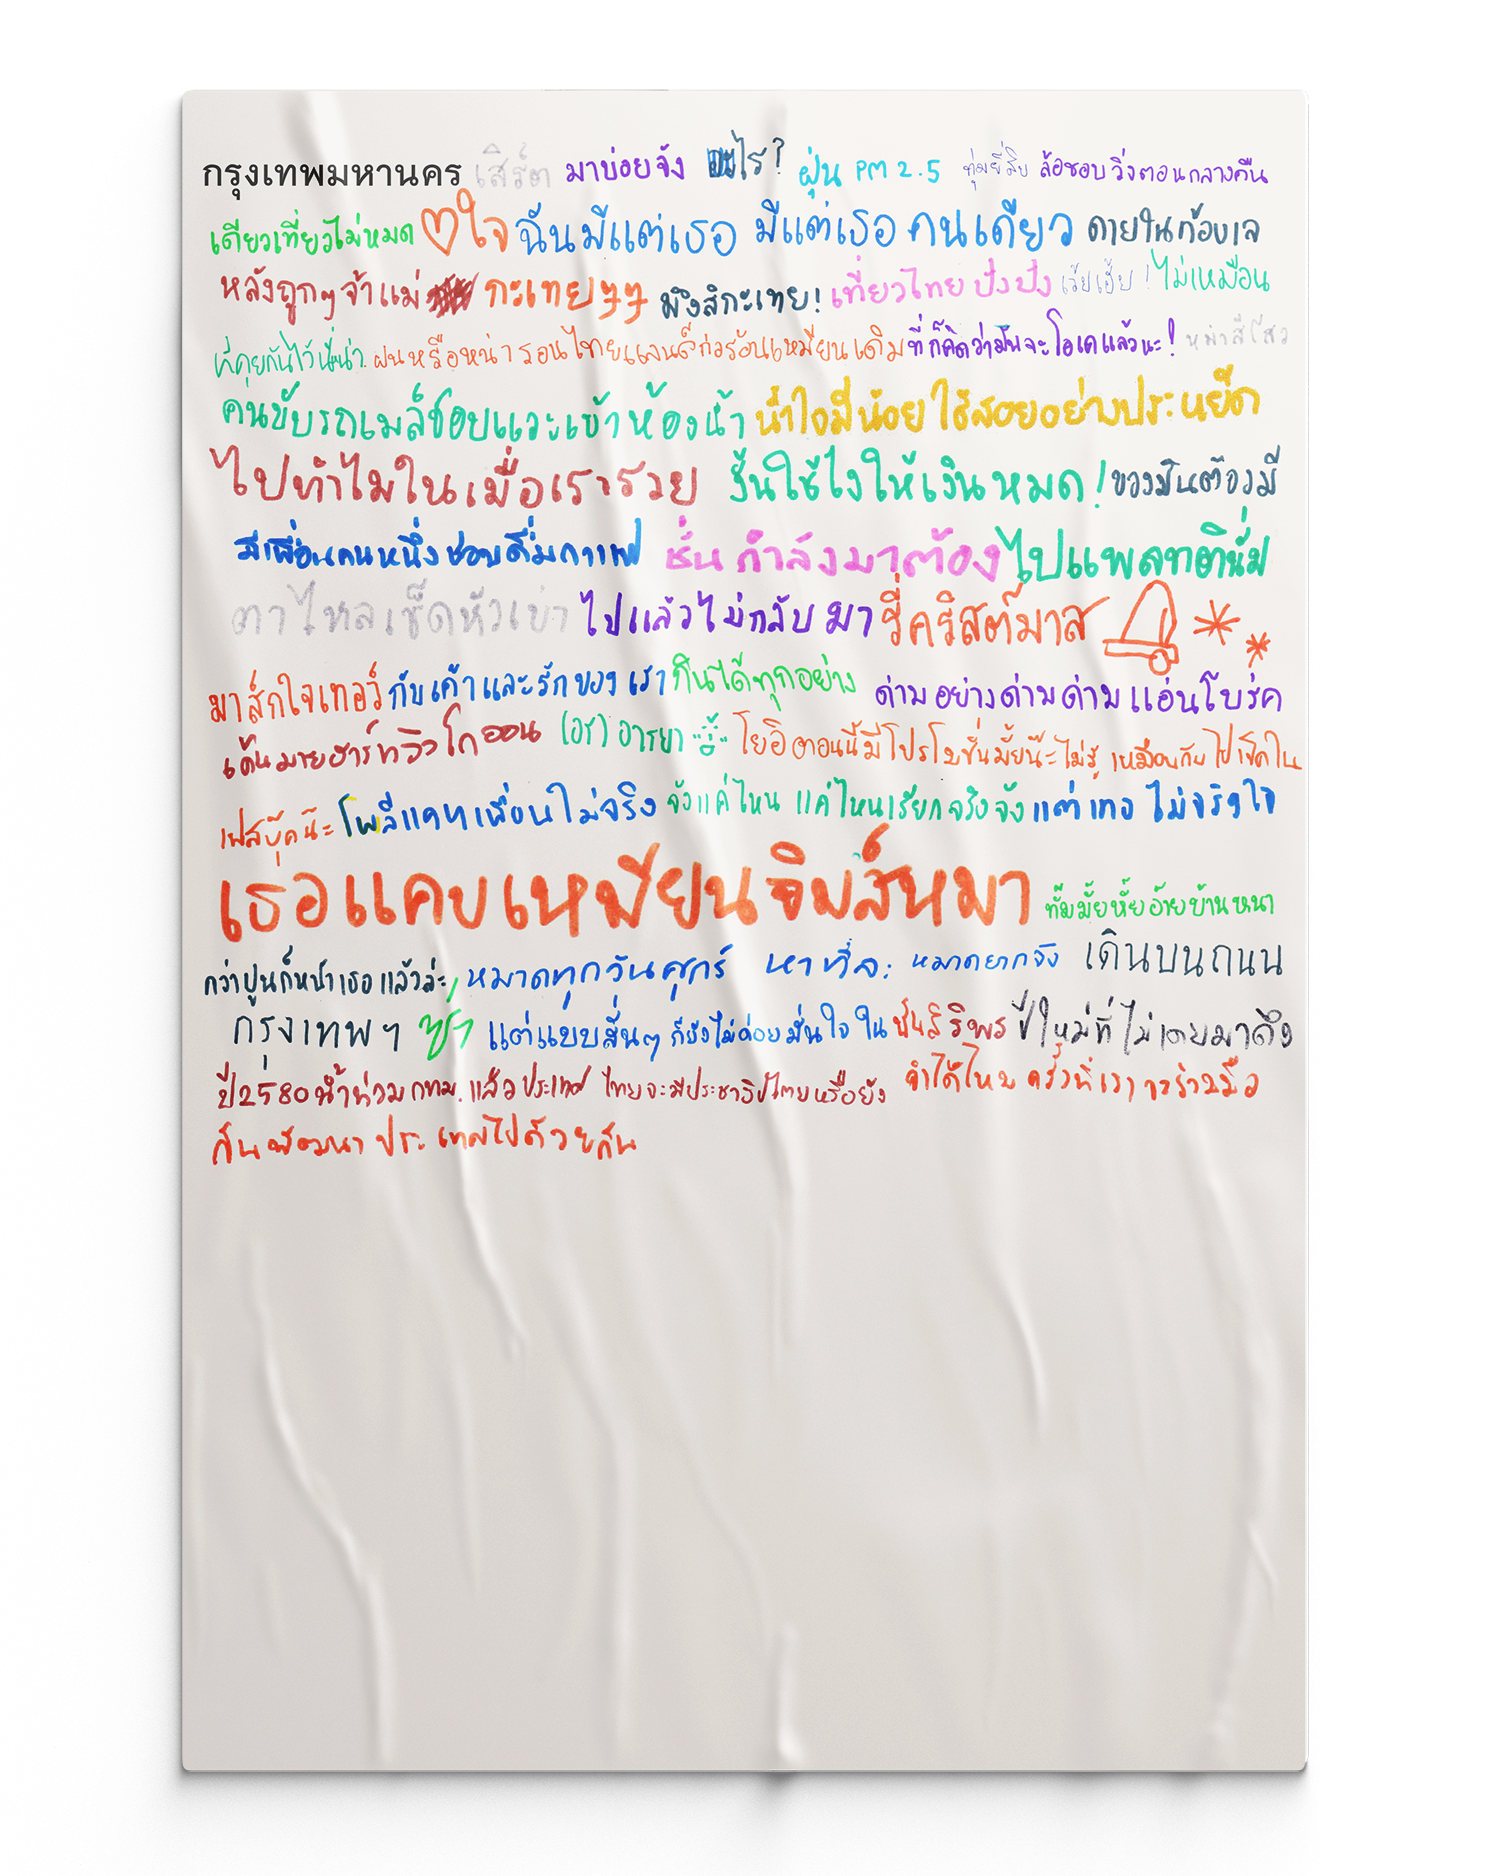 กรุงเทพมหานคร เสิร์ต มาบ่อยจัง ไร? ฝุ่น PM 2.5 ทุ่มยี่สิบ ล้อชอบวิ่งตอนกลางคืน
เดียวเที่ยวไม่หมด ใจ ฉันมีแต่เธอ มีแต่เธอ คนเดียว ภายใน
หลังถูกๆ จ้าแม่ กะเทยๆๆ มึงสิกะเทย! เที่ยวไทย ปังปัง เว้ยเฮ้ย! ไม่เหมือน
ที่คุยกันไว้นี่น่า ฝนหรือหน้ารอนไทยแลนด์ก่อร้อนเหมียนเดิม ที่ก็คิดว่ามันจะโอเคแล้วนะ! หมาสีโสว
คนขับรถเมล์ชอบแวะเข้าห้องน้ำ น้ำใจมีน้อย ใช้สอยอย่างประหยัด
ไปทำไมในเมื่อเรารวย งั้นใช้ไงให้เงินหมด! ของมันต้องมี
มีเพื่อนคนหนึ่งชอบดื่มกาแฟ ชั่น กำลังมาต้อง ไปแพลทตินั่ม
ตาไหลเช็ดหัวเข่า ไปแล้วไม่กลับมา รี่คริสต์มาส
มาส์กใจเทอร์ กับเค้าและรักของเรา กินได้ทุกอย่าง ด่ามอย่างด่ามด่าม แอ่นโบร่ค
เด้นมายฮาร์ทวิวโกออน (อร) อารยา โยอิตอนนี้มีโปรโมชั่นมั้ยน๊ะ ไม่รู้ เหมือนกับ ไปเช็คใน
เฟสบุ๊คน๊ะ โพลีแคทเพื่อนไม่จริง จังแค่ไหน แค่ไหนเรียกจริงจัง แต่เทอ ไม่จริงใจ
เธอแคบเหมียนจิมส์หมา ทั้มมั้ยหั้ยอ้ายบ้านหนา
กว่าปูนก็หน้าเธอแล้วล่ะ หมาดทุกวันศุกร์ หาที่จ: หมาดยากจัง เดินบนถนน
กรุงเทพฯ ช้ำ แต่แบบสั่นๆ ก็ยังไม่ค่อยมั่นใจ ใน ชั้นสิริพร ปีใหม่ที่ไม่เคยมาถึง
ปี2580น้ำท่วม กทม. แล้วประเทศ ไทยจะมีประชาธิปไตยหรือยัง จำได้ไหม ครั้งที่เรา จะร่วมมือ
กันพัฒนา ประเทศไปด้วยกัน